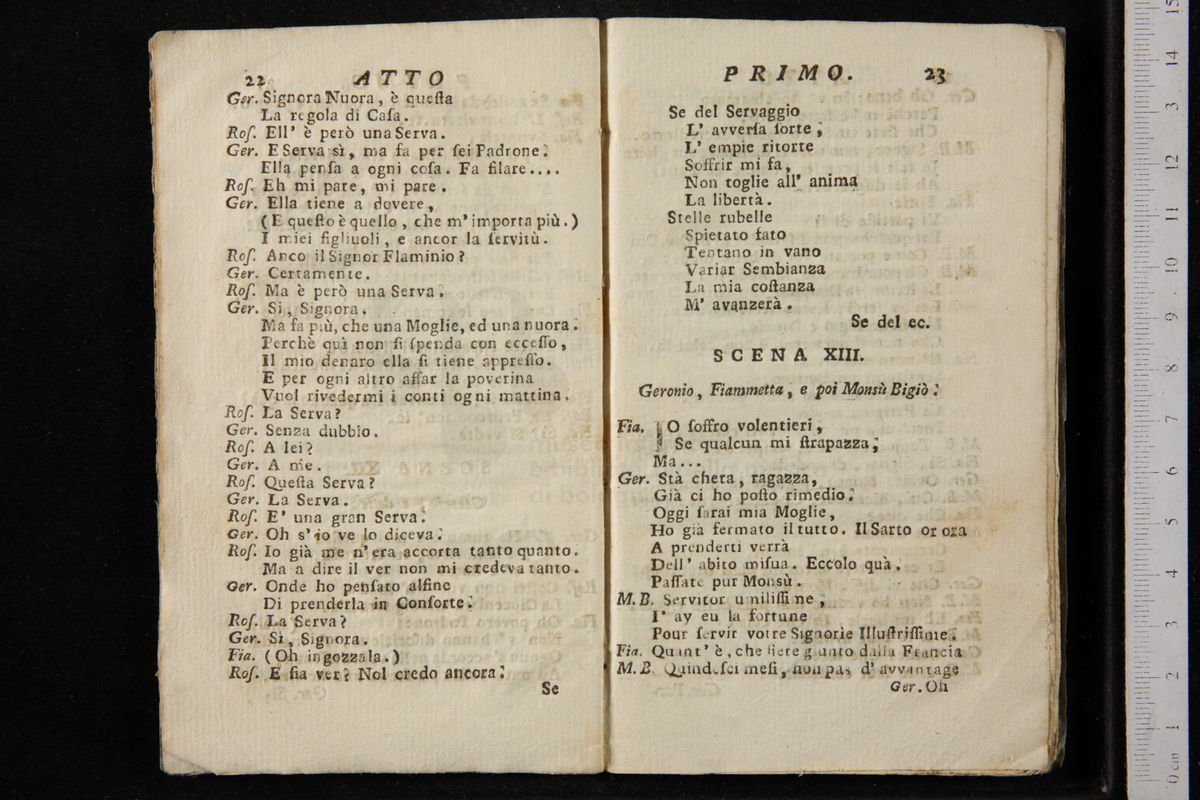 22 ATTO
Ger. Signora Nuora, è queſta
La regola di Caſa.
Roſ. Ell' è però una Serva.
Ger. E Serva sì, ma fa per ſei Padrone.
Ella penſa a ogni coſa. Fa filare....
Roſ. Eh mi pare, mi pare.
Ger. Ella tiene a dovere,
(E queſto è quello, che m' importa più.)
I miei figliuoli, e ancor la ſervitù.
Roſ. Anco il Signor Flaminio?
Ger. Certamente.
Roſ. Ma è però una Serva.
Ger. Si, Signora.
Ma fa più, che una Moglie, ed una nuora.
Perchè quì non ſi ſpenda con ecceſſo,
Il mio denaro ella ſi tiene appreſſo.
E per ogni altro affar la poverina
Vuol rivedermi i conti ogni mattina.
Roſ. La Serva?
Ger. Senza dubbio.
Roſ. A lei?
Ger. A me.
Roſ. Queſta Serva?
Ger. La Serva.
Roſ. E' una gran Serva.
Ger. Oh s' io ve lo diceva.
Roſ. Io già me n' era accorta tanto quanto.
Ma a dire il ver non mi credeva tanto.
Ger. Onde ho penſato alfine
Di prenderla in Conſorte.
Roſ. La Serva?
Ger. Si, Signora.
Fia. (Oh ingozzala.)
Roſ. E fia ver? Nol credo ancora.
Se
PRIMO. 23
Se del Servaggio
L' avverſa ſorte,
L' empie ritorte
Soffrir mi fa,
Non toglie all' anima
La libertà.
Stelle rubelle
Spietato fato
Tentano in vano
Variar Sembianza
La mia coſtanza
M' avanzerà.
Se del ec.
SCENA XIII.
Geronio, Fiammetta, e poi Monsù Bigiò.
Fia. IO ſoffro volentieri,
Se qualcun mi ſtrapazza,
Ma...
Ger. Stà cheta, ragazza,
Già ci ho poſto rimedio.
Oggi ſarai mia Moglie,
Ho già fermato il tutto. Il Sarto or ora
A prenderti verrà
Dell' abito miſua. Eccolo quà.
Paſſate pur Monsù.
M. B. Servitor umiliſſime,
I' ay eu la fortune
Pour ſervir votre Signorie Illuſtriſſime.
Fia. Quant' è, che ſiete giunto dalla Francia
M. B. Quindeſci meſi, non pas d' avvantage
Ger. Oh